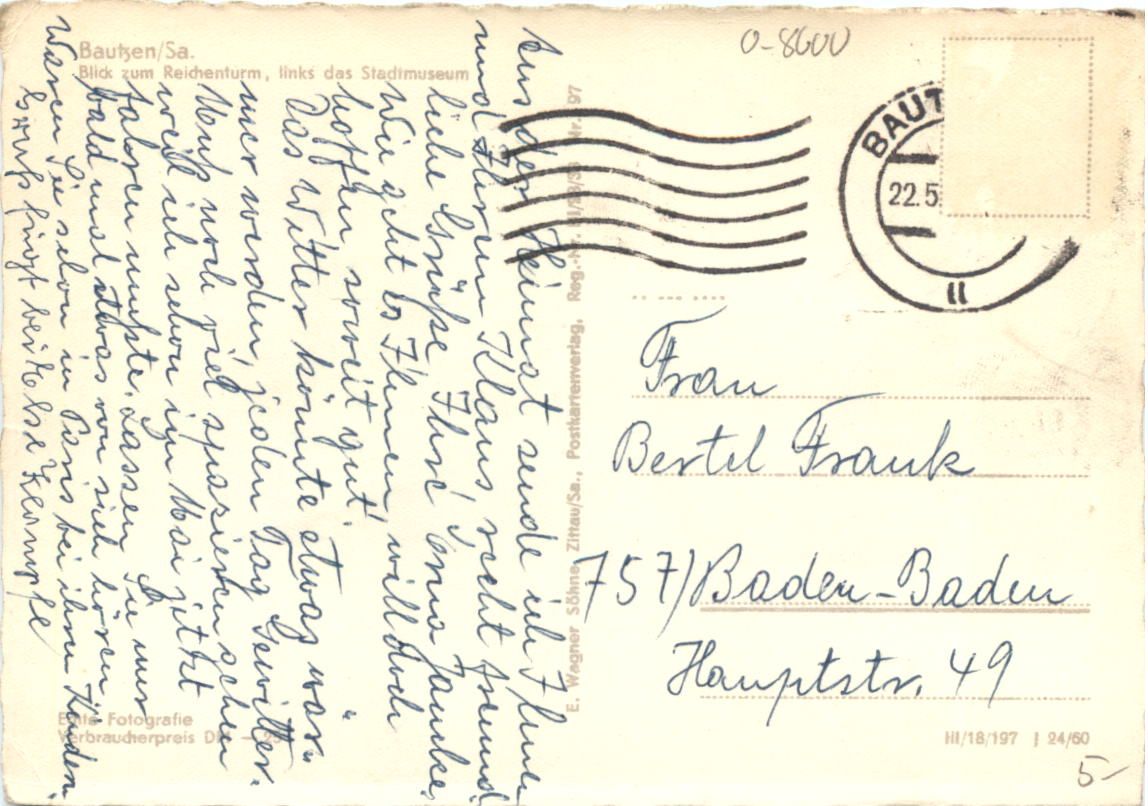 Bautzen/Sa.
Blick zum Reichenturm, links das Stadtmuseum
o-8600
BAUT
22.5
II
Aus der Heimat sende ich Ihnen
und Ihrem Klaus recht freund-
liche Grüße Ihre Jaunke,
Wie geht es Ihnen, will doch
hoffen, soweit gut.
Das Wetter könnte etwas wär-
mer werden, jeden Tag Gewitter.
Muß noch viel spazieren gehen
weil ich schon im Mai jetzt
fahren mußte. Lassen Sie nur
bald mal etwas von sich hören,
Waren Sie schon in Paris bei ihren Kindern.
Gruß fügt bei
E. Wagner Söhne Zittau/Sa., Postkartenverlag, Reg.-Nr. 97
Frau
Bertel Frank
757) Baden-Baden
Hauptstr. 49
Echte Fotografie
Verbraucherpreis DM
III/18/197 J 24/60
5-